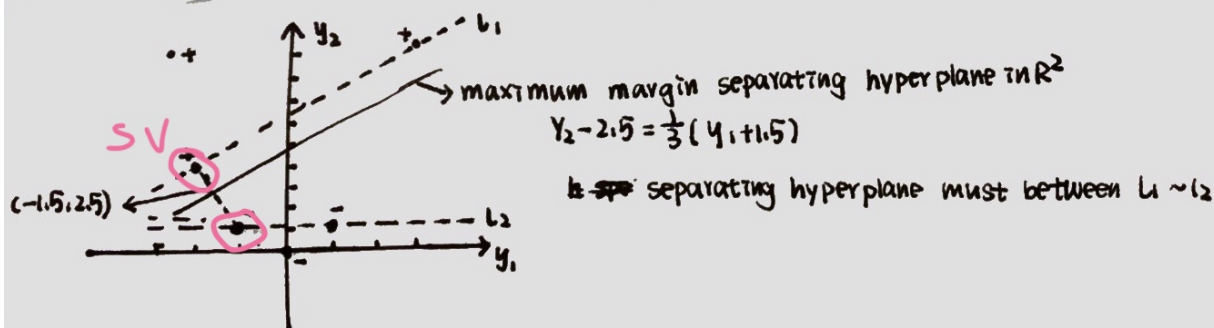 y₂
+
+
L₁
maximum margin separating hyperplane in R²
Y₂-2.5=⅓(y₁+1.5)
SV
+
(-1.5,2.5)
separating hyperplane must between L₁~L₂
-
-
-
L₂
y₁
-